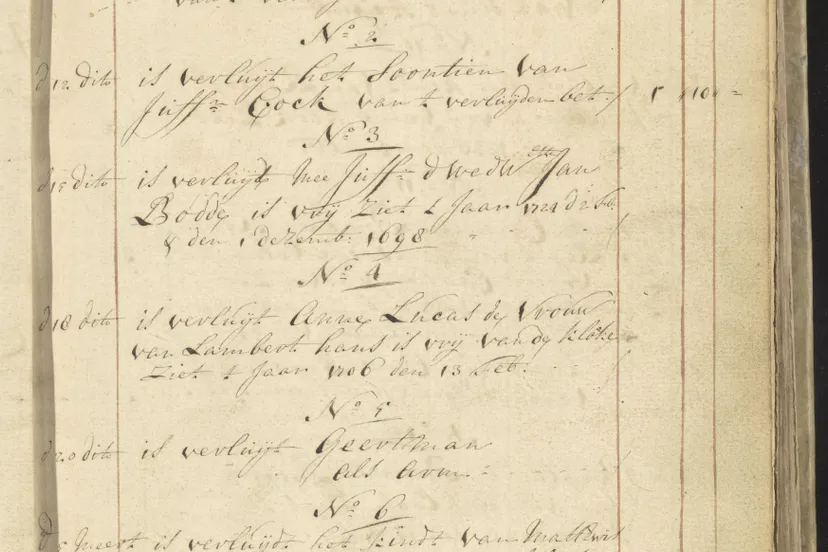 No 2
d 12 dito is verluÿt het Soontien van
Juffr Cock van t verluÿden bet: / 5 " 10 " =
No 3
d 15 dito is verluÿt Mee Juffr d wedw Jan
Bodde is vrÿ Ziet t Jaar 1721 d 2 feb:
& den 1 dezemb: 1698
No 4
d 18 dito is verluÿt Anne Lucas de Vrouw
van Lambert hans is vrÿ van de kloke
Ziet t Jaar 1706 den 13 feb:
No 5
d 20 dito is verluÿt Geertman
als arm
No 6
Meert is verluÿdt het Kindt van Mattwis